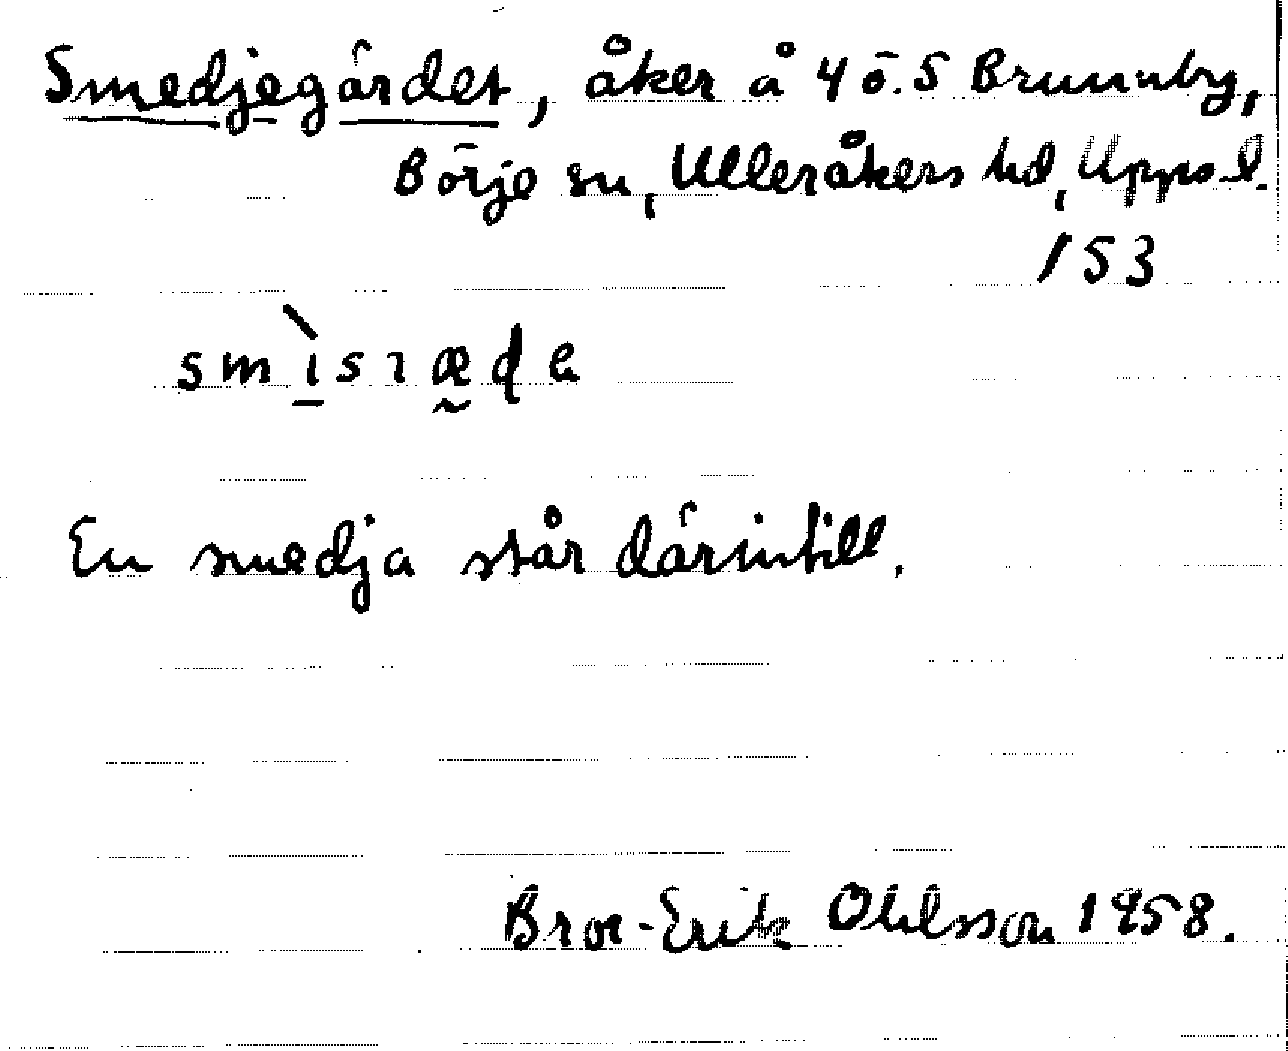 Smedjegärdet, åker å 4 ö. 5 Brunnby,
Börje sn, Ulleråkers hd, Uppsal.
153
smìsɿæde
En smedja står därintill.
Bror-Erik Ohlsson 1958.